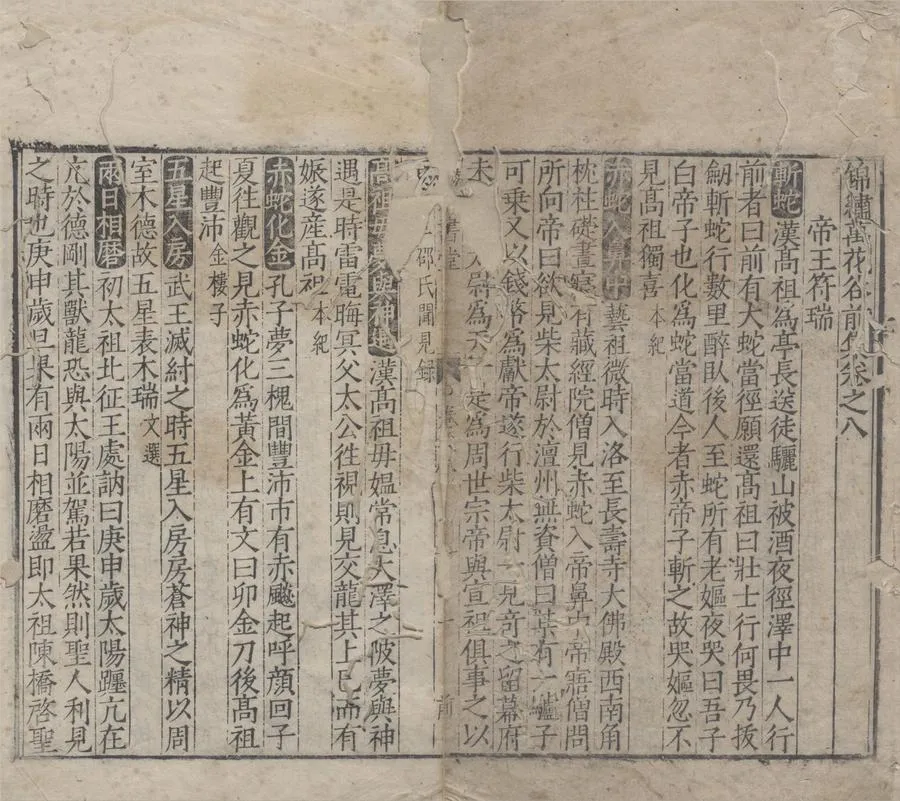 錦繡萬花谷前集卷之八
帝王符瑞
斬蛇 漢髙祖為亭長送徒驪山被酒夜徑澤中一人行
前者曰前有大蛇當徑願還髙祖曰壯士行何畏乃拔
劒斬蛇行數里醉臥後人至蛇所有老嫗夜哭曰吾子
白帝子也化為蛇當道今者赤帝子斬之故哭嫗忽不
見髙祖獨喜 本紀
赤蛇入鼻中 藝祖微時入洛至長壽寺大佛殿西南角
枕柱礎晝寢有藏經院僧見赤蛇入帝鼻中帝寤僧問
所向帝曰欲見柴太尉於澶州無資僧曰某有一驢子
可乗又以錢為獻帝遂行柴太尉一見奇之留幕府
未 太尉為天子是為周世宗帝與宣祖俱事之以
邵氏聞見録
髙祖母夢與神遇 漢髙祖母媼常息大澤之陂夢與神
遇是時雷電晦冥父太公徃視則見交龍其上已而有
娠遂産髙祖 本紀
赤蛇化金 孔子夢三槐間豐沛市有赤飈起呼顔回子
夏徃觀之見赤蛇化為黃金上有文曰卯金刀後髙祖
起豐沛 金樓子
五星入房 武王滅紂之時五星入房房蒼神之精以周
室木德故五星表木瑞 文選
兩日相磨 初太祖北征王處訥曰庚申歲太陽躔亢在
亢於德剛其獸龍恐與太陽並駕若果然則聖人利見
之時也庚申歲旦果有兩日相磨盪即太祖陳橋啓聖